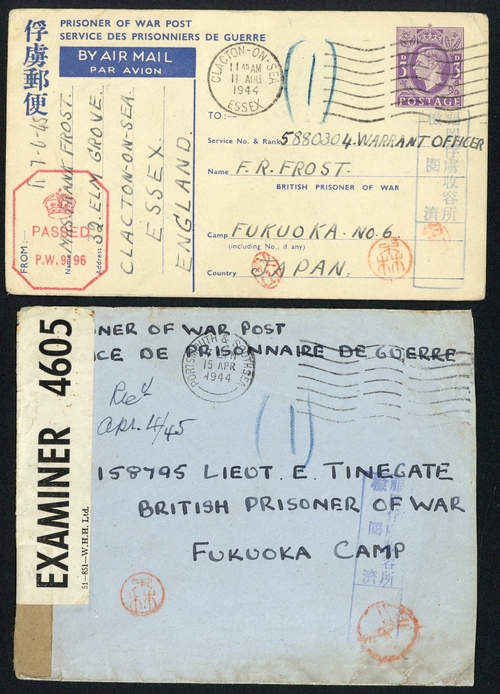 PRISONER OF WAR POST
SERVICE DES PRISONNIERS DE GUERRE
俘虜郵便
BY AIR MAIL
PAR AVION
CLACTON-ON-SEA
11 45 AM
11 AUG
1944
ESSEX
(1)
3D
3D
POSTAGE
TO:—
Service No. & Rank 5880304. WARRANT OFFICER
Name F.R. FROST.
BRITISH PRISONER OF WAR
Camp FUKUOKA. NO. 6.
(including No., if any)
Country JAPAN.
FROM:—
Name MRS FRANK FROST.
Address 32. ELM GROVE.
CLACTON-ON-SEA.
ESSEX
ENGLAND.
PASSED
閲
濟
收容所
EXAMINER 4605
51-851—W.H.H. Ltd.
NER OF WAR POST
CE DE PRISONNAIRE DE GUERRE
PORTSMOUTH & SOUTHSEA
15 APR
1944
Rec'd
Apr. 4/45
(1)
158795 LIEUT. E. TINEGATE
BRITISH PRISONER OF WAR
FUKUOKA CAMP
閲
濟
收容所